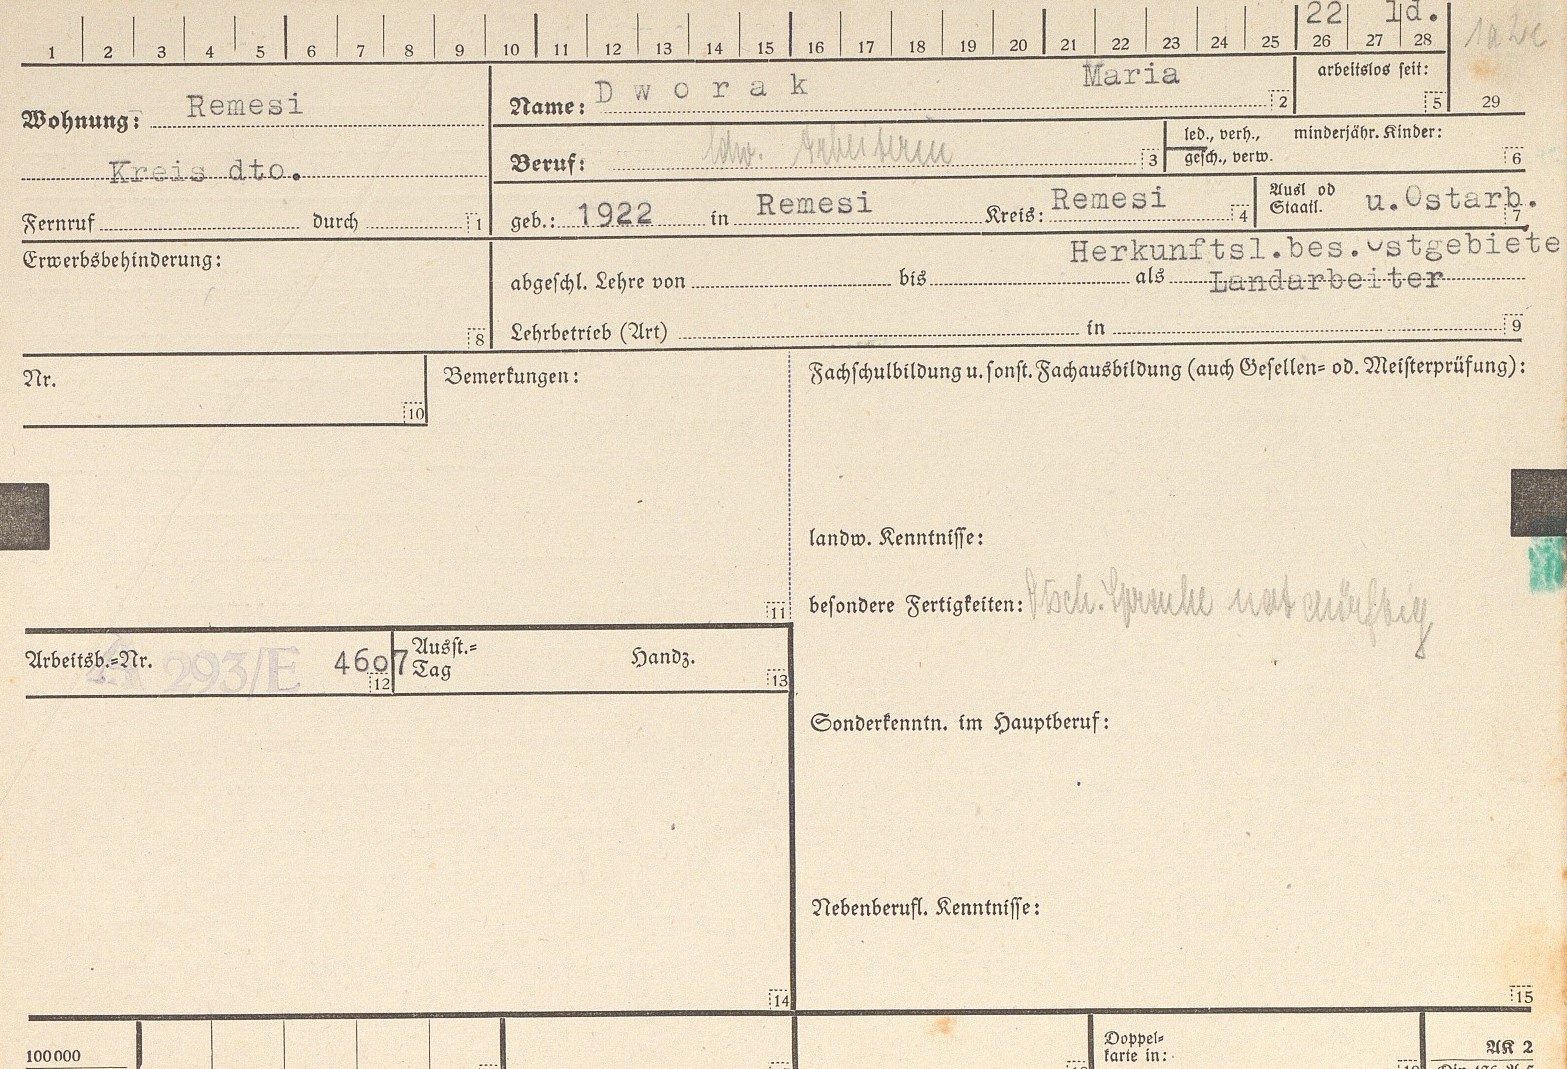 22 ld.
1 2 3 4 5 6 7 8 9 10 11 12 13 14 15 16 17 18 19 20 21 22 23 24 25 26 27 28
29
Wohnung: Remesi
Kreis dto.
Fernruf durch 1
Name: Dworak Maria 2
arbeitslos seit: 5
Beruf: ldw. Arbeiterin 3
led., verh., gesch., verw.
minderjähr. Kinder: 6
geb.: 1922 in Remesi Kreis: Remesi 4
Ausl od Staatl. u.Ostarb. 7
Herkunftsl.bes.Ostgebiete
Erwerbsbehinderung: 8
abgeschl. Lehre von bis als Landarbeiter
Lehrbetrieb (Art) in 9
Nr. 10
Bemerkungen: 11
Fachschulbildung u. sonst. Fachausbildung (auch Gesellen= od. Meisterprüfung):
landw. Kenntnisse:
besondere Fertigkeiten: Dtsch. Sprache notdürftig
Arbeitsb.=Nr. A 293/E 4607 12
Ausst.= Tag Handz. 13
Sonderkenntn. im Hauptberuf:
Nebenberufl. Kenntnisse:
14
15
100000
Doppel=
karte in:
AK 2